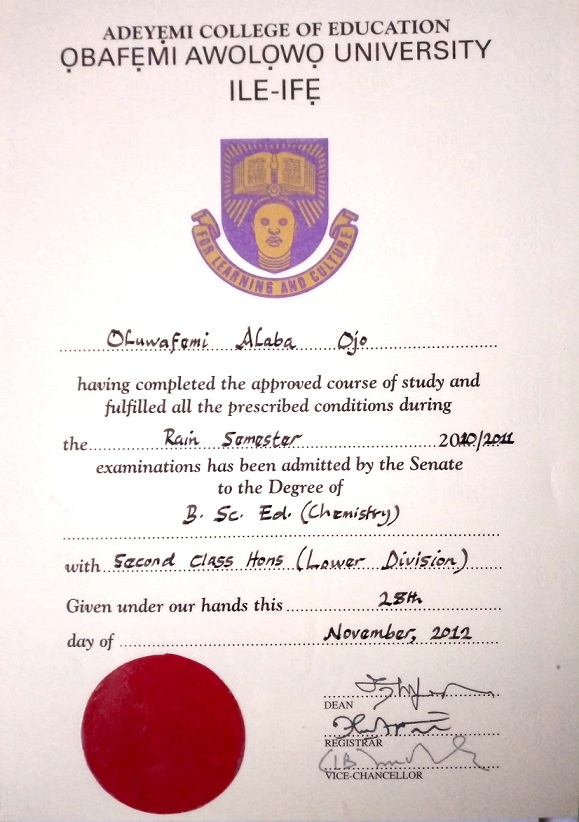 ADEYẸMI COLLEGE OF EDUCATION
ỌBAFẸMI AWOLỌWỌ UNIVERSITY
ILE-IFẸ
FOR LEARNING AND CULTURE
Oluwafemi Alaba Ojo
having completed the approved course of study and
fulfilled all the prescribed conditions during
the Rain Semester 2010/2011
examinations has been admitted by the Senate
to the Degree of
B. Sc. Ed. (Chemistry)
with Second Class Hons (Lower Division)
Given under our hands this 28th
day of November, 2012
DEAN
REGISTRAR
VICE-CHANCELLOR